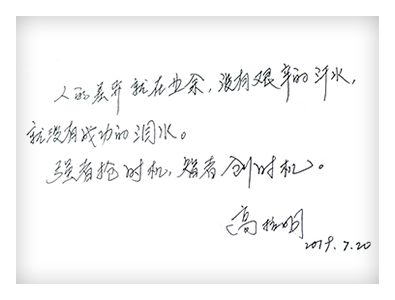 人的差异就在业余，没有艰辛的汗水，
就没有成功的泪水。
强者抢时机，智者创时机。
高
2019.7.20